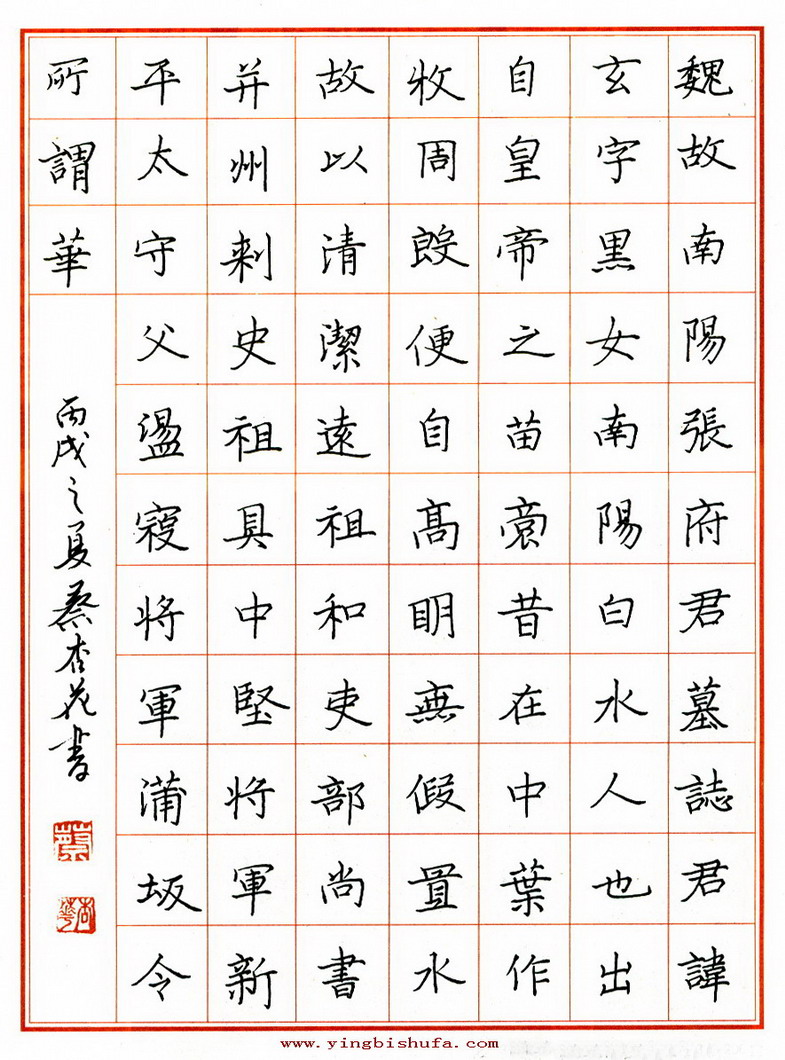 魏故南陽張府君墓誌君諱
玄字黑女南陽白水人也出
自皇帝之苗裔昔在中葉作
牧周殷便自高明無假置水
故以清潔遠祖和吏部尚書
并州刺史祖具中堅將軍新
平太守父盪寇將軍蒲坂令
所謂華
丙戌之夏蔡杏花書
www.yingbishufa.com